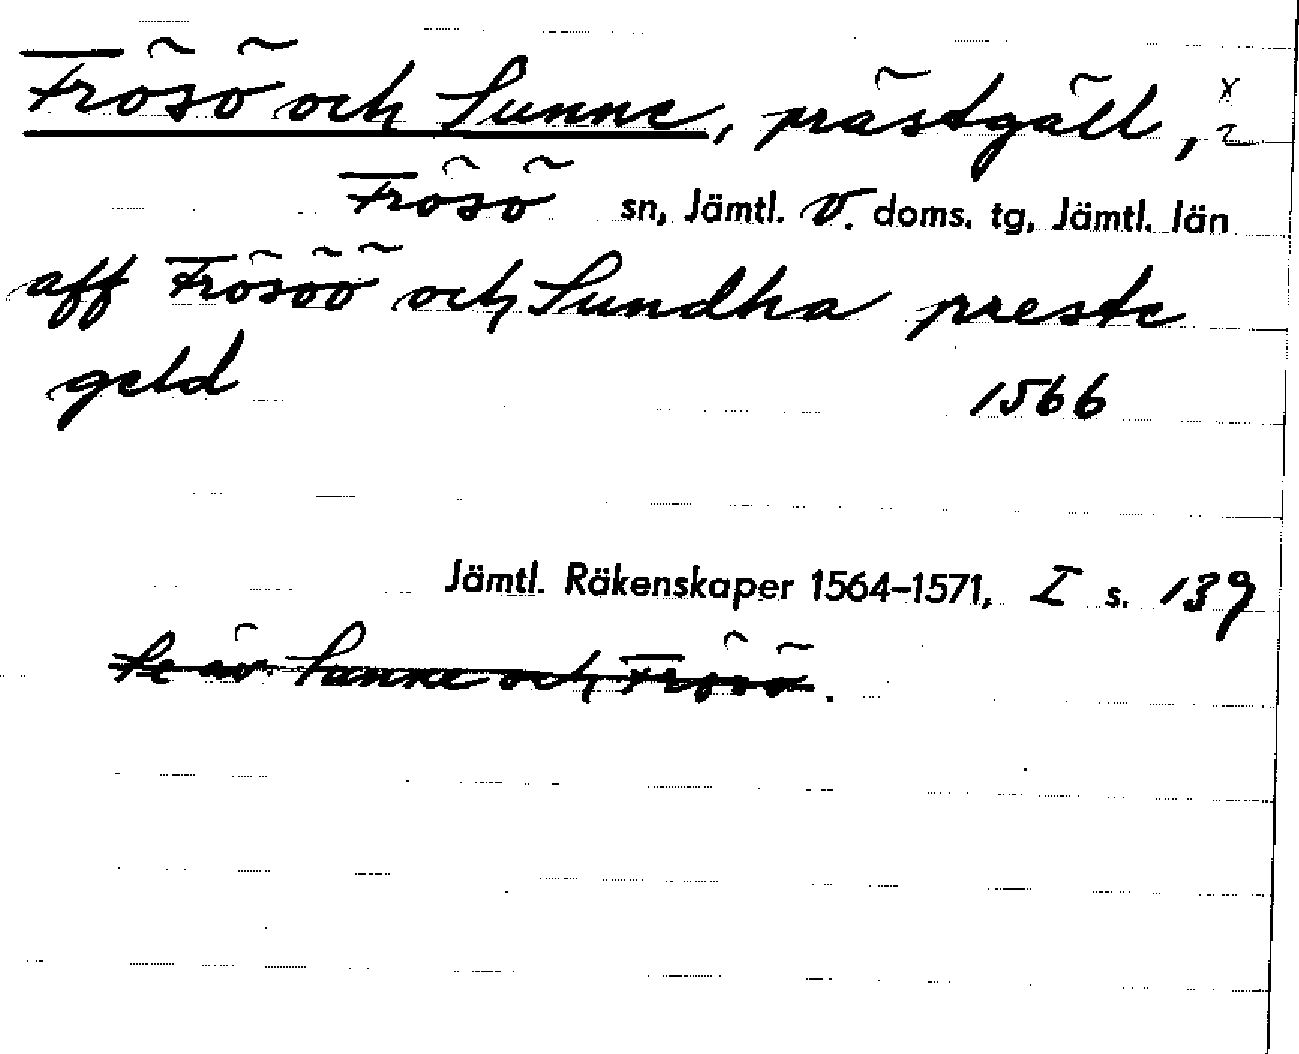 Frösö och Sunne, prästgäll, x 2
Frösö sn, Jämtl. v. doms. tg, Jämtl. län
aff Frösöö och Sundha preste
geld 1566
Jämtl. Räkenskaper 1564–1571, I s. 139
Se äv. Sunne och Frösö.